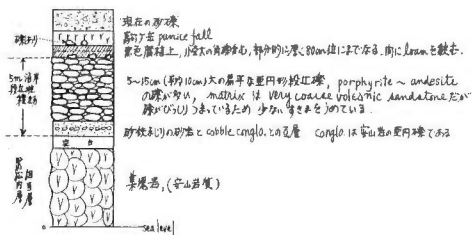 現在の砂礫
礫あり
pumice fall
黒色腐植土, 小豆大の
部分的に厚く80cm位にまでなる. 間に loam を挟む.
5m海岸段丘堆積物
5~15cm(平均10cm)大の扁平な亜円形段丘礫, porphyrite ~ andesite
の礫が多い, matrix は very coarse volcanic sandstone だが
礫がびっしりつまっているため 少ないすきまをうめている.
砂鉄まじりの砂岩と cobble conglo. との互層 conglo. は安山岩の亜円礫である
相当層
集塊岩, (安山岩質)
0
sea level